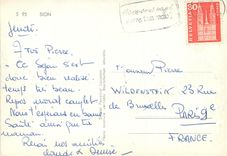 S 95 SION
HELVETIA
30
Jeudi
Très Pierre,
Ce Séjour s'est
donc bien réalisé
temps très beau.
Repos moral complet
Nous t'espérons en bonne
Santé ainsi que ta
maman.
Reçois nos amitiés
Claude & Denise
Monsieur Pierre
WILDENSTEIN 23 Rue
de Bruxelles
PARIS 9e
FRANCE